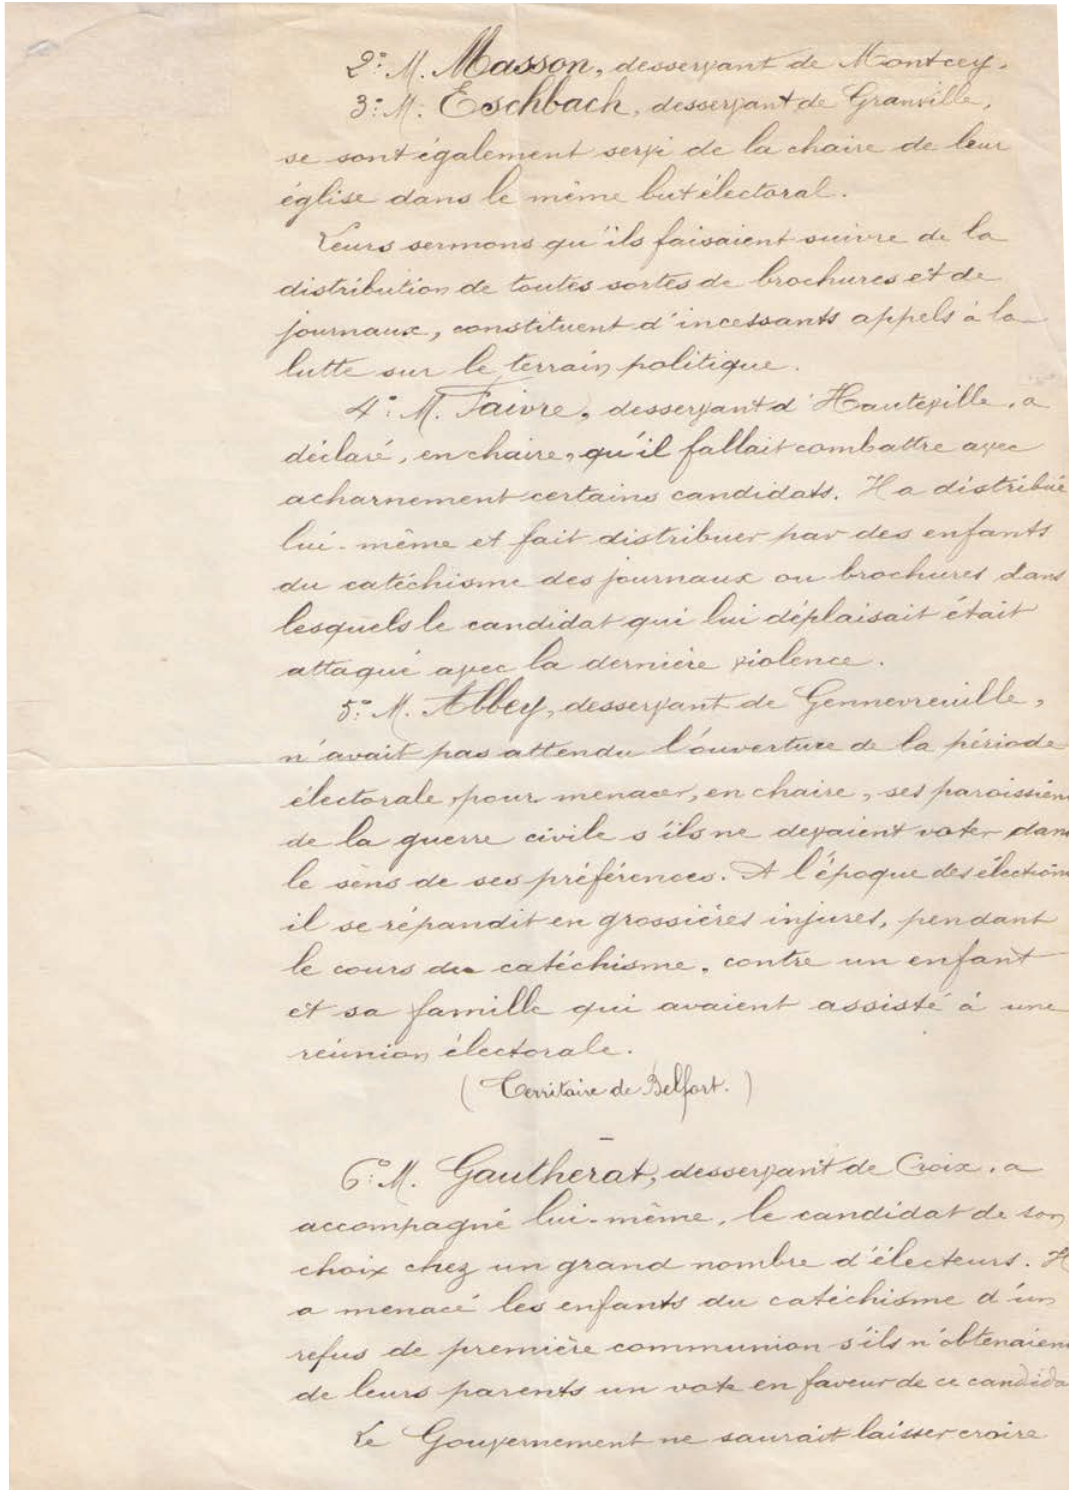 2º: M. Masson, desservant de Montcey.
3º: M. Eschbach, desservant de Granville,
se sont également servi de la chaire de leur
église dans le même but électoral.
Leurs sermons qu'ils faisaient suivre de la
distribution de toutes sortes de brochures et de
journaux, constituent d'incessants appels à la
lutte sur le terrain politique.
4º: M. Faivre, desservant d'Hauteville, a
déclaré, en chaire, qu'il fallait combattre avec
acharnement certains candidats. Il a distribué
lui-même et fait distribuer par des enfants
du catéchisme des journaux ou brochures dans
lesquels le candidat qui lui déplaisait était
attaqué avec la dernière violence.
5º: M. Abbey, desservant de Gennevreuille,
n'avait pas attendu l'ouverture de la période
électorale, pour menacer, en chaire, ses paroissien
de la guerre civile s'ils ne devaient voter dan
le sens de ses préférences. A l'époque des élection
il se répandit en grossières injures, pendant
le cours du catéchisme, contre un enfant
et sa famille qui avaient assisté à une
réunion électorale.
(Territoire de Belfort.)
6º: M. Gautherat, desservant de Croix, a
accompagné lui-même, le candidat de son
choix chez un grand nombre d'électeurs. Il
a menacé les enfants du catéchisme d'un
refus de première communion s'ils n'obtenaien
de leurs parents un vote en faveur de ce candida
Le Gouvernement ne saurait laisser croire